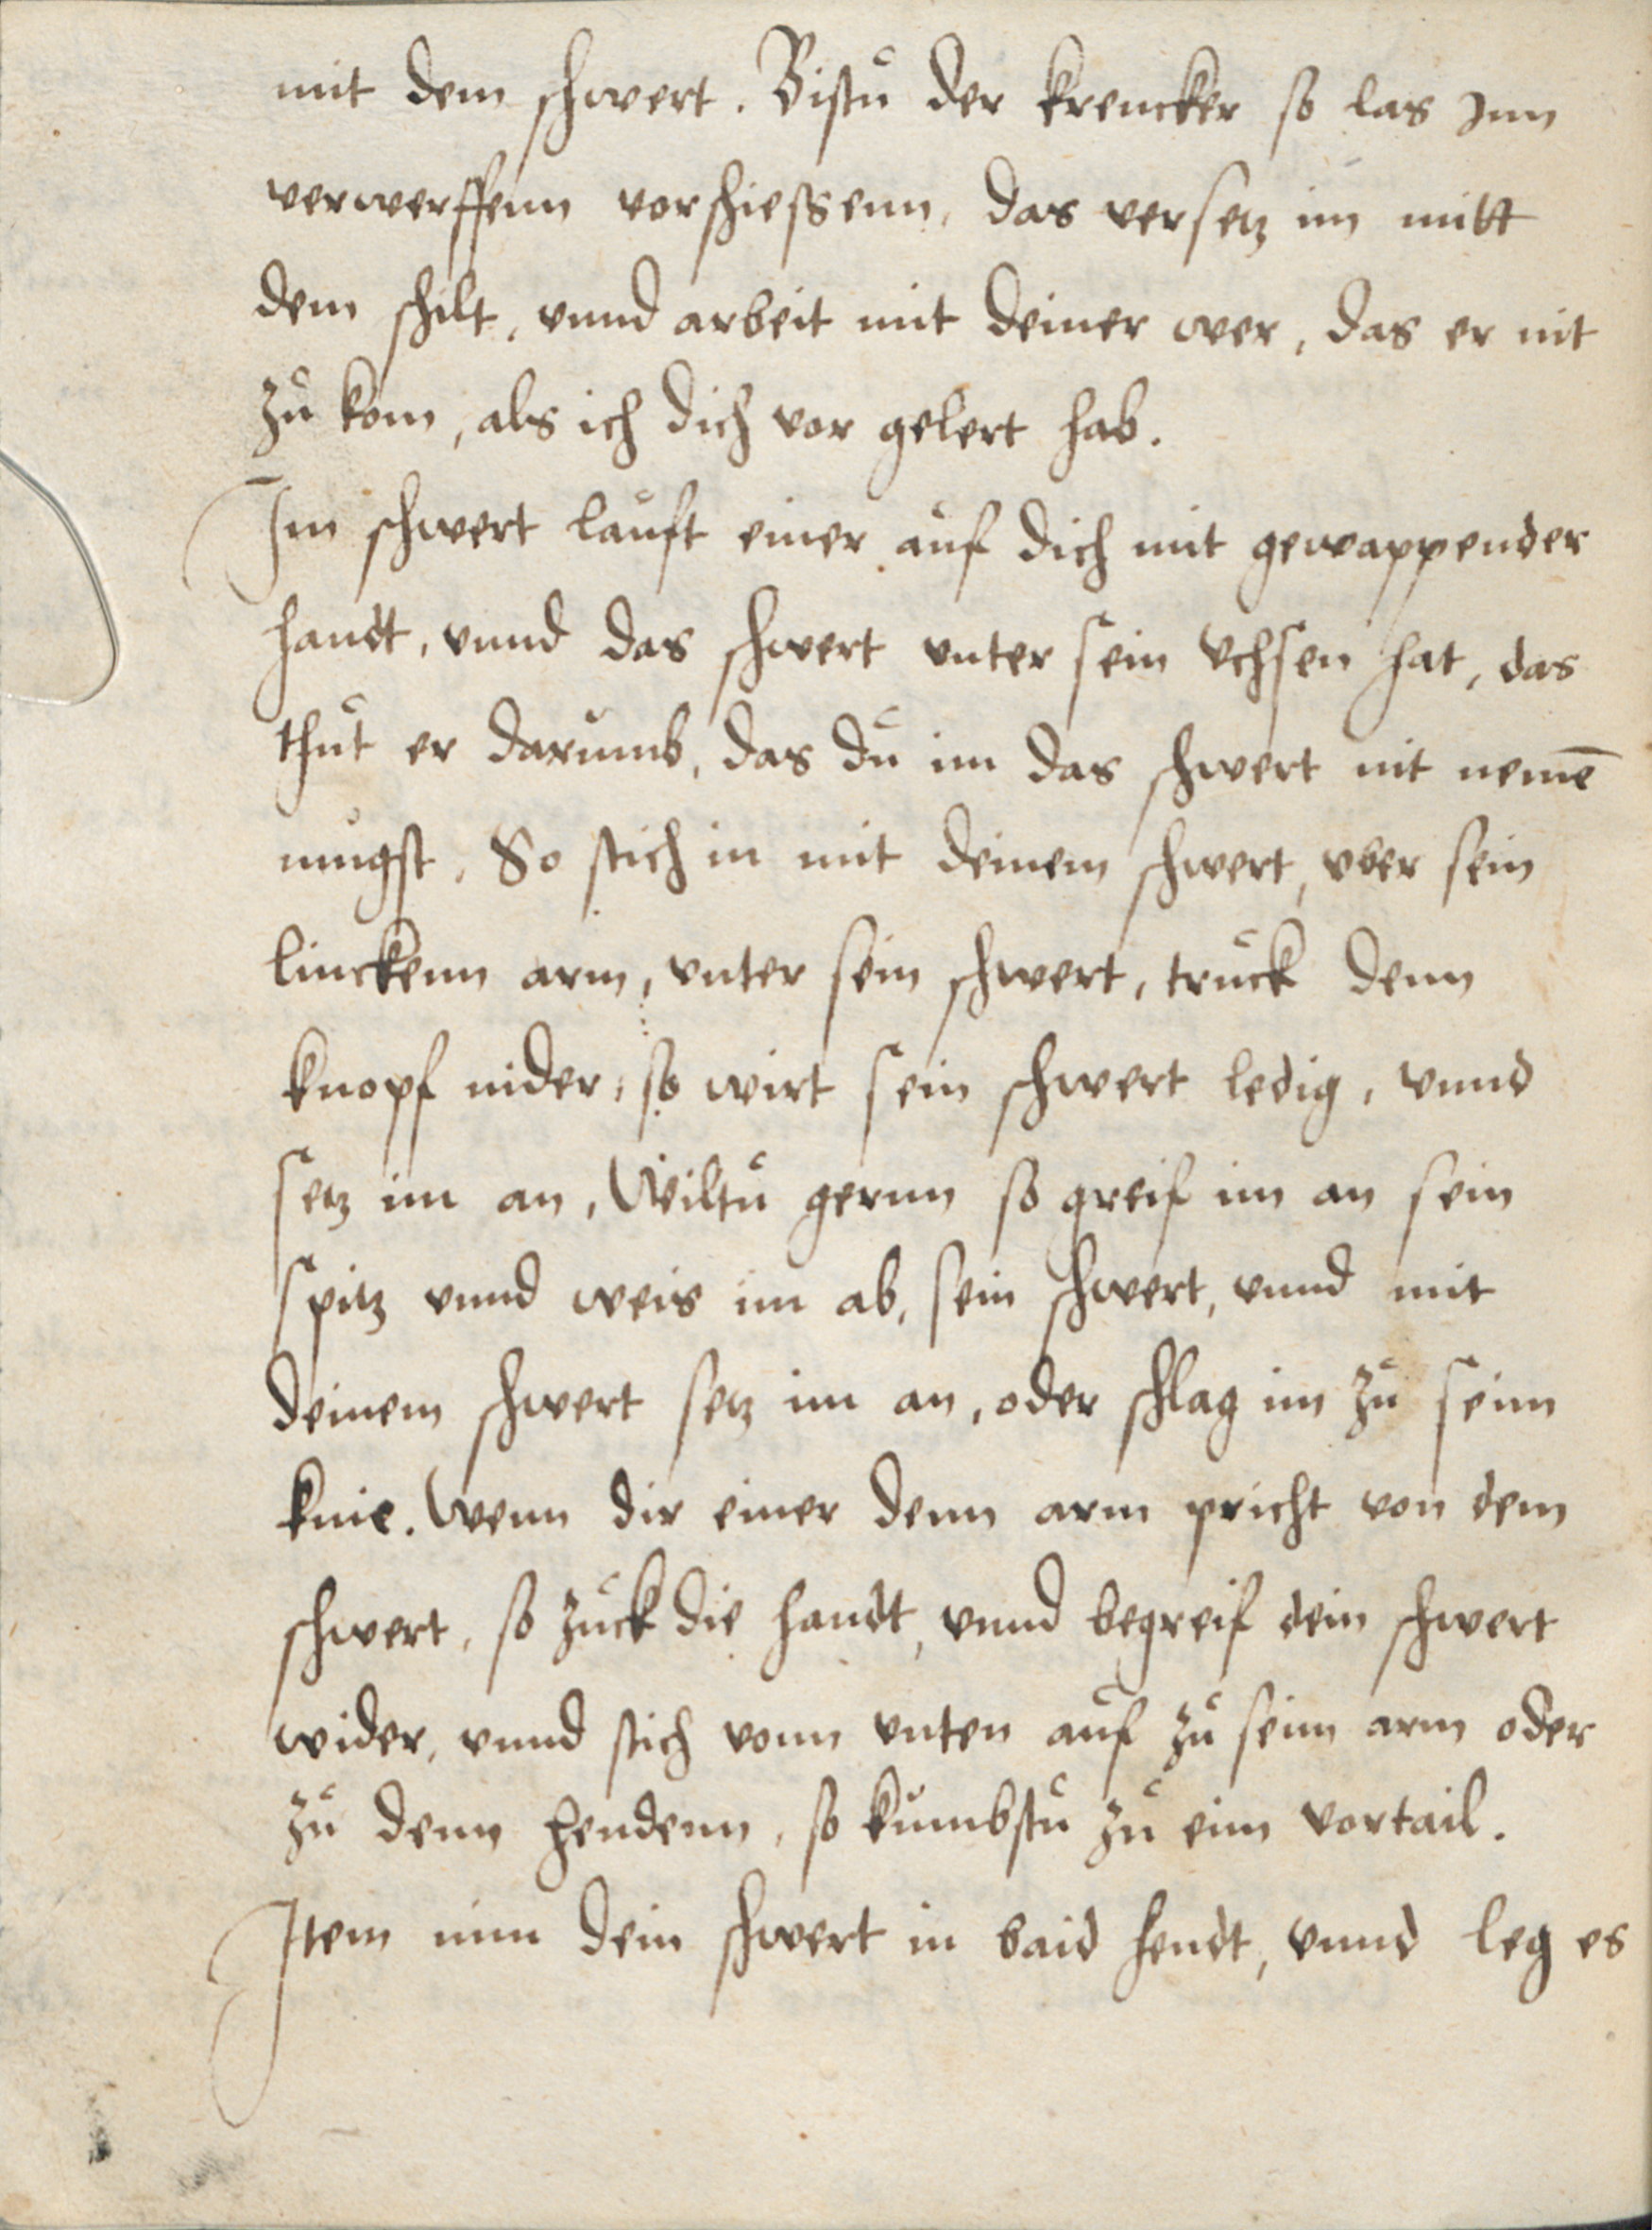 mit dem schwert. Bistu der krencker so las Inn
verwerffenn vorschiessenn, das versetz im mitt
dem schilt, vnnd arbeit mit deiner wer, das er nit
zu kom, als ich dich vor gelert hab.
Im schwert lauft einer auf dich mit gewappender
handt, vnnd das schwert vnter sein vchsen hat, das
thut er darumb, das du im das schwert nit nemē
mugst, So stich in mit deinem schwert, vber sein
linckenn arm, vnter sein schwert, truck denn
knopf nider, so wirt sein schwert ledig, vnnd
setz im an, Wiltu gernn so greif im an sein
spitz vnnd weis im ab, sein schwert, vnnd mit
deinem schwert setz im an, oder schlag im zu seim
knie. Wenn dir einer denn arm pricht von dem
schwert, so zuck die handt, vnnd begreif dein schwert
wider, vnnd stich vonn vnten auf zu seim arm oder
zu denn hendenn, so kumbstu zu eim vortail.
Item nim dein schwert in baid hendt, vnnd leg es